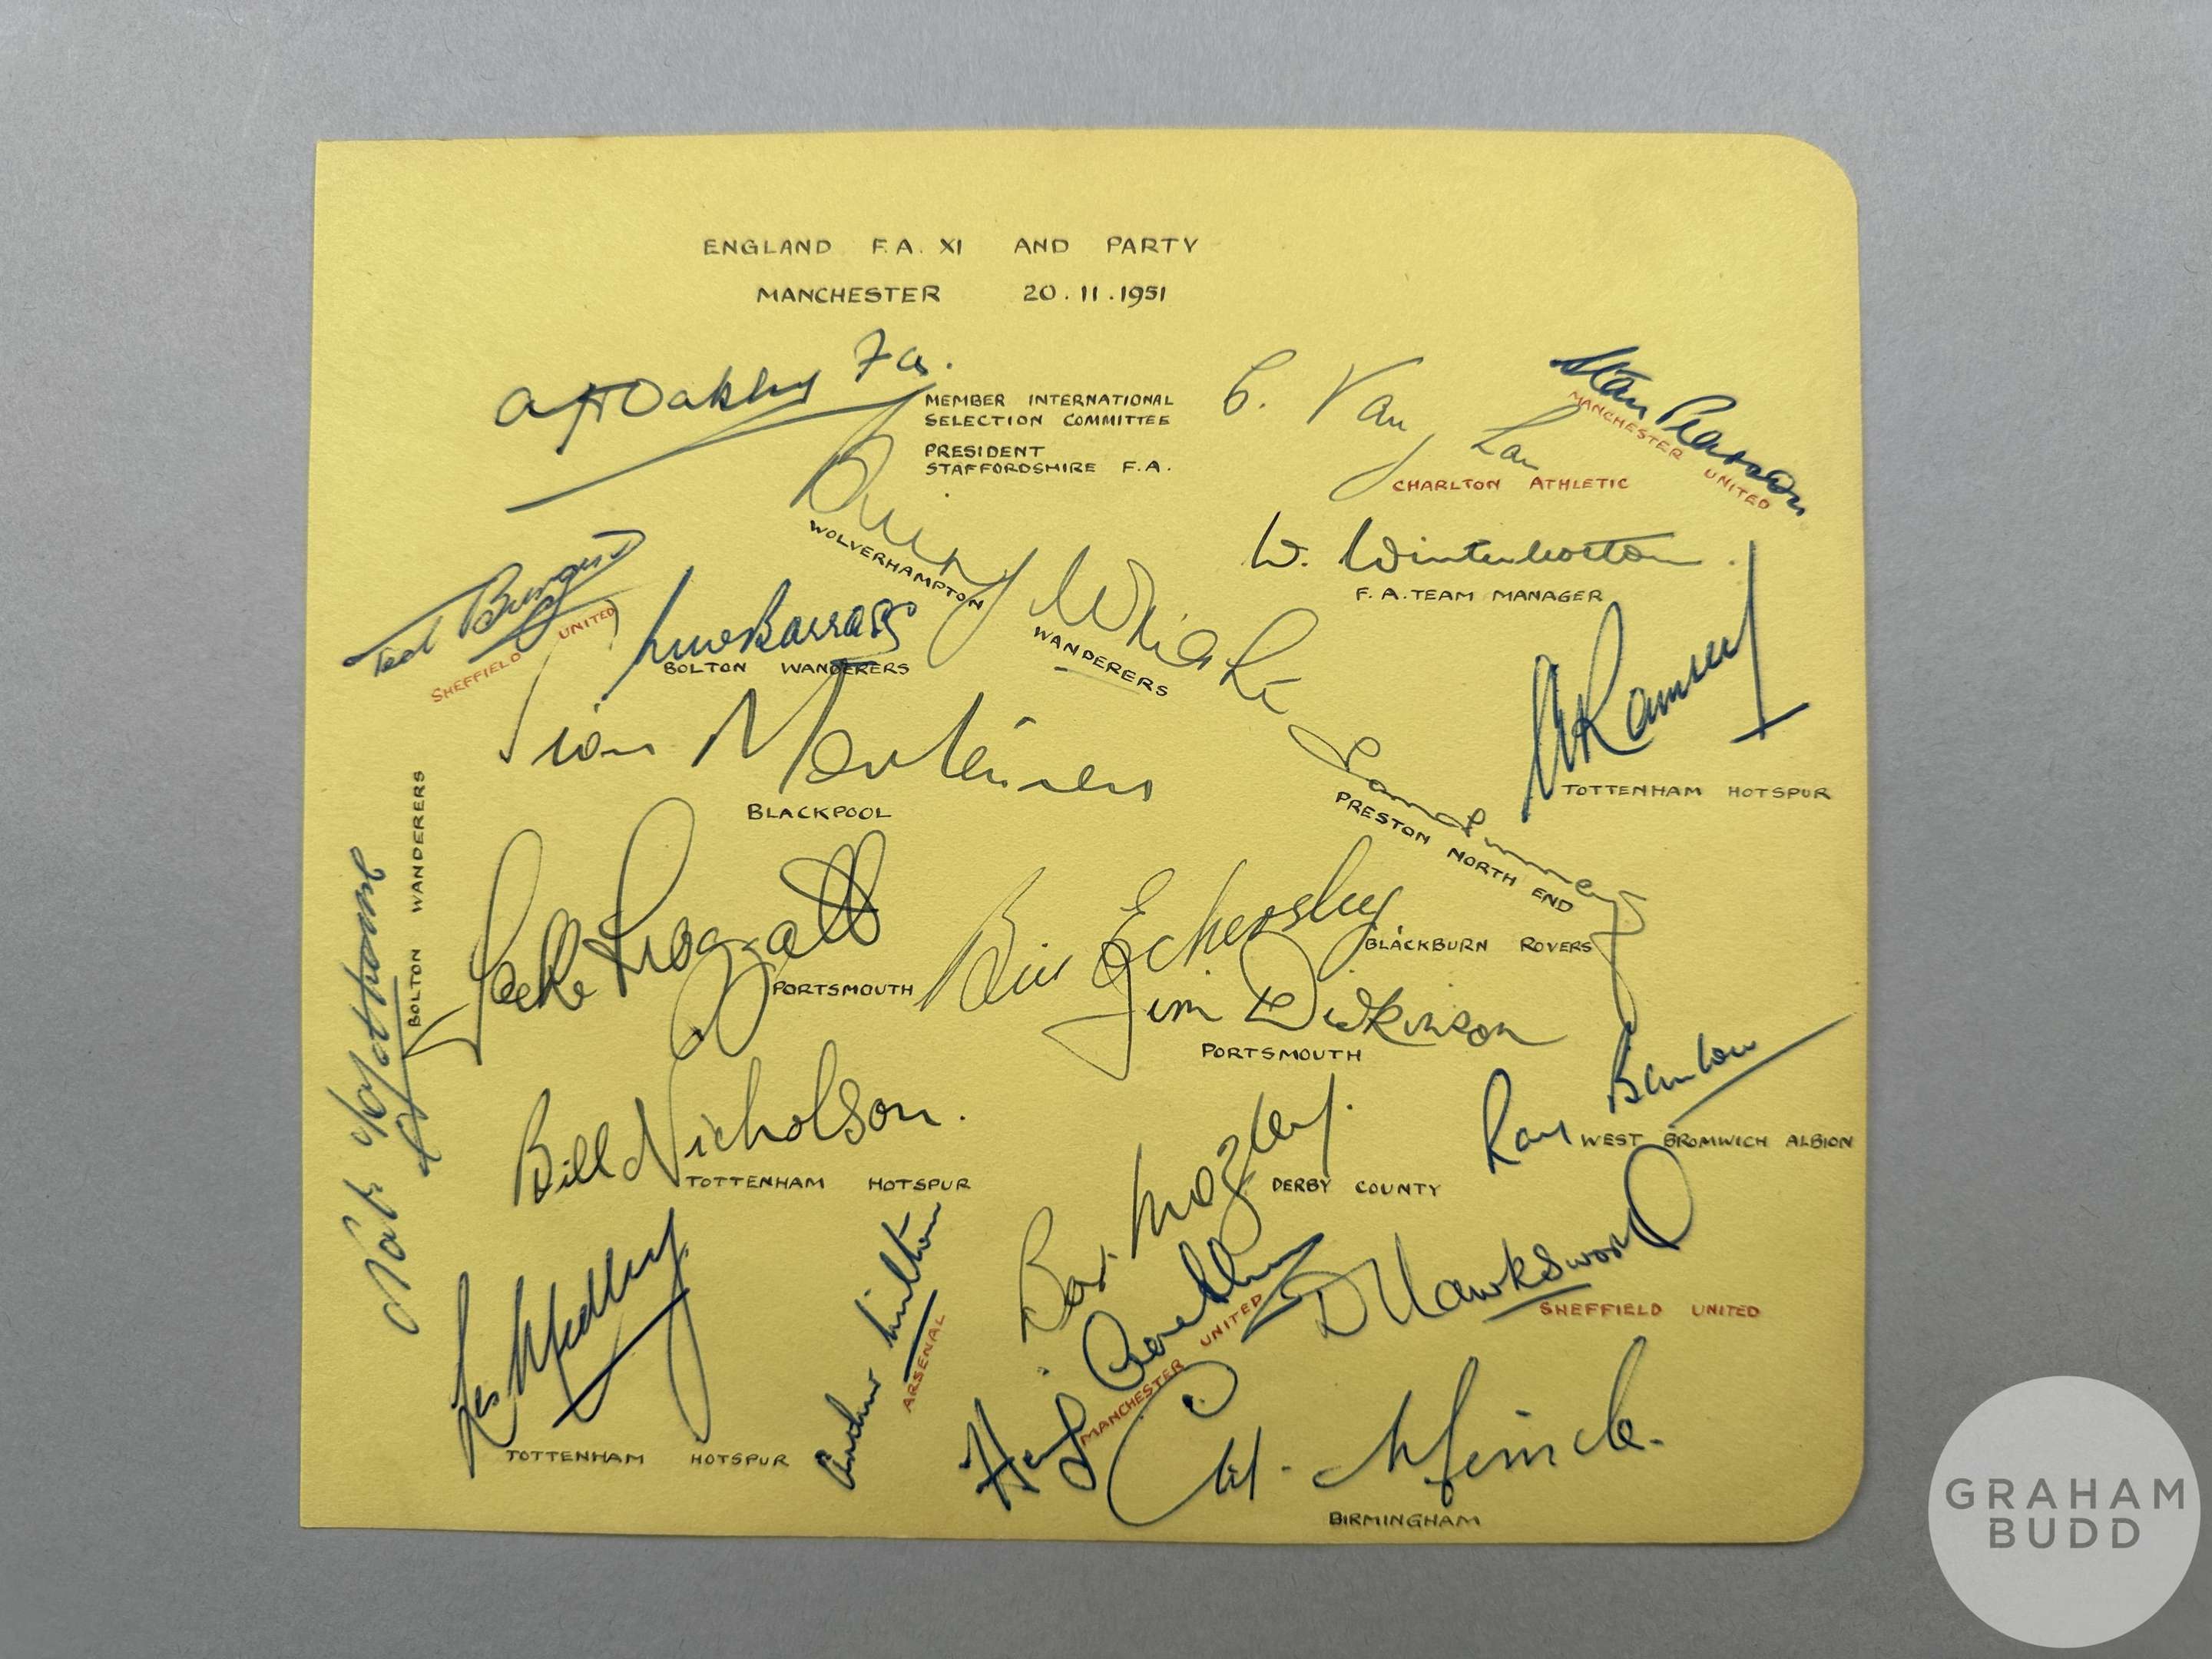 ENGLAND F.A. XI AND PARTY
MANCHESTER 20.11.1951
A H Oakley F.A.
MEMBER INTERNATIONAL
SELECTION COMMITTEE
PRESIDENT
STAFFORDSHIRE F.A.
Stan Pearson
MANCHESTER UNITED
CHARLTON ATHLETIC
Billy Wright
WOLVERHAMPTON WANDERERS
W. Winterbottom.
F.A. TEAM MANAGER
Ted Burgin
SHEFFIELD UNITED
Barrass
BOLTON WANDERERS
A Ramsey
TOTTENHAM HOTSPUR
Stan Mortensen
BLACKPOOL
Tom Finney
PRESTON NORTH END
Nat Lofthouse
BOLTON WANDERERS
Jack Froggatt
PORTSMOUTH
Bill Eckersley
BLACKBURN ROVERS
Jim Dickinson
PORTSMOUTH
Bill Nicholson.
TOTTENHAM HOTSPUR
Ray Barlow
WEST BROMWICH ALBION
Bert Mozley.
DERBY COUNTY
Les Medley.
TOTTENHAM HOTSPUR
Arthur Milton
ARSENAL
Henry Cockburn
MANCHESTER UNITED
D Hawksworth
SHEFFIELD UNITED
G. H. Merrick.
BIRMINGHAM
GRAHAM
BUDD